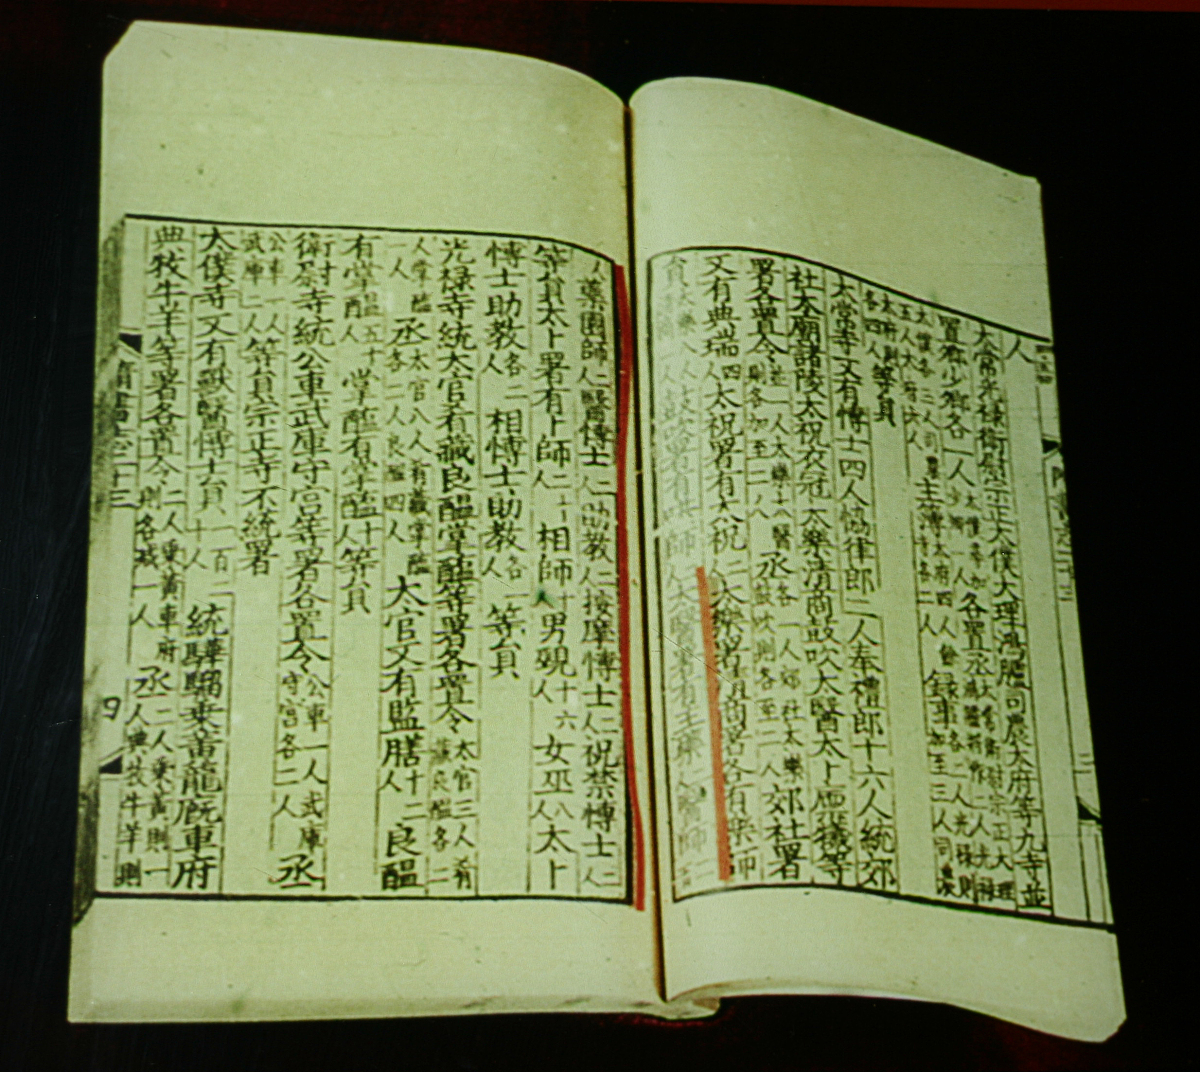 人
太常光祿衛尉宗正太僕大理鴻臚司農太府等九寺並
置卿少卿各一人太僕各加少卿一人各置丞太常衛尉宗正大理鴻臚將作二人光祿
太僕各三人司農五人太府六人主簿太府四人餘寺各二人錄事各二人光祿則加至三人司農
太府則各四人等員
太常寺又有博士四人協律郎二人奉禮郎十六人統郊
社太廟諸陵太祝衣冠太樂清商鼓吹太醫太卜廩犧等
署各置令並一人太樂太醫則各加至二人丞各一人郊社太樂鼓吹則各至二人郊社署
又有典瑞四人太祝署有太祝二人太樂署清商署各有樂師
員太樂八人清商二人鼓吹署有哄師二人太醫署有主藥二人醫師二百
人藥園師二人醫博士二人助教二人按摩博士二人祝禁博士二人
等員太卜署有卜師二十人相師十人男覡十六人女巫八人太卜
博士助教各二人相博士助教各一人等員
光祿寺統太官肴藏良醞掌醢等署各置令太官三人肴藏良醞各二
人掌醢一人丞太官八人肴藏掌醢各二人良醞四人太官又有監膳十二人良醞
有掌醞五十人掌醢有掌醢十人等員
衛尉寺統公車武庫守宮等署各置令公車一人武庫守宮各二人丞
公車一人武庫二人等員宗正寺不統署
太僕寺又有獸醫博士員一百二十人統驊騮乘黃龍廄車府
典牧牛羊等署各置令二人乘黃車府則各減一人丞二人乘黃則一人典牧牛羊則
隋書志二十三
四